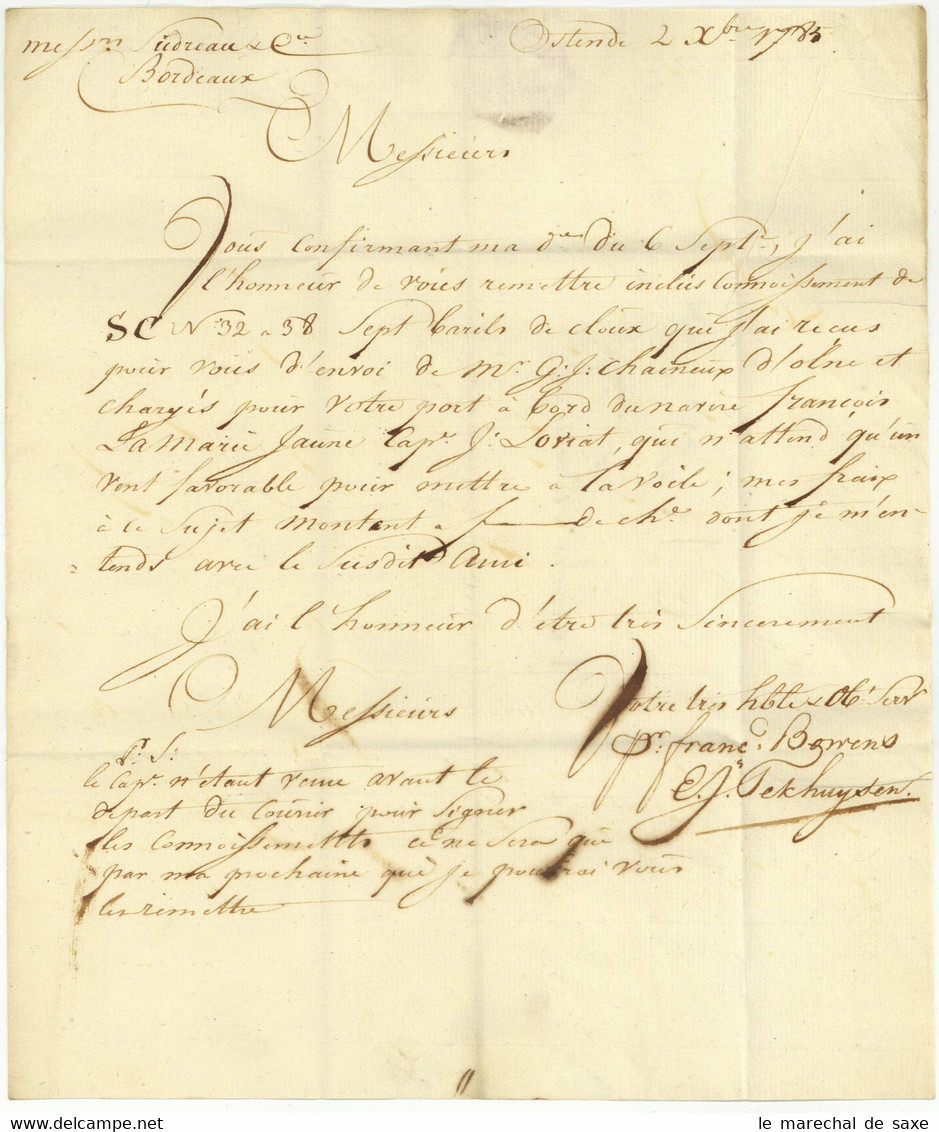 Messrs. Sudreau & Cie
Ostende 2 Xbre 1785
Bordeaux
Messieurs
Vous confirmant ma dre du 6 Septe, J'ai
l'honneur de vous remettre inclus Connoissement de
SC No 32 a 38 Sept barils de cloux que j'ai recus
pour vous d'envoi de Mr. G: J: Chaineux d'olne et
chargés pour votre port à bord du navire françois
La Marie Jaune Capne J: Loriat, qui n'attend qu'un
vent favorable pour mettre a la voile; mes fraix
à ce Sujet montent a f——— de che. dont je m'en-
=tends avec le Susdit Ami.
J'ai l'honneur d'être très Sincerement
Messieurs
Votre très hble & Obt Serv
Pr. franc: Bowens
E. J. Tekhuysen.
P: S:
le Capne. n'étant venu avant le
depart du Courier pour Signer
les Connoissements ce ne Sera que
par ma prochaine que je pourrai vous
les remettre
le marechal de saxe